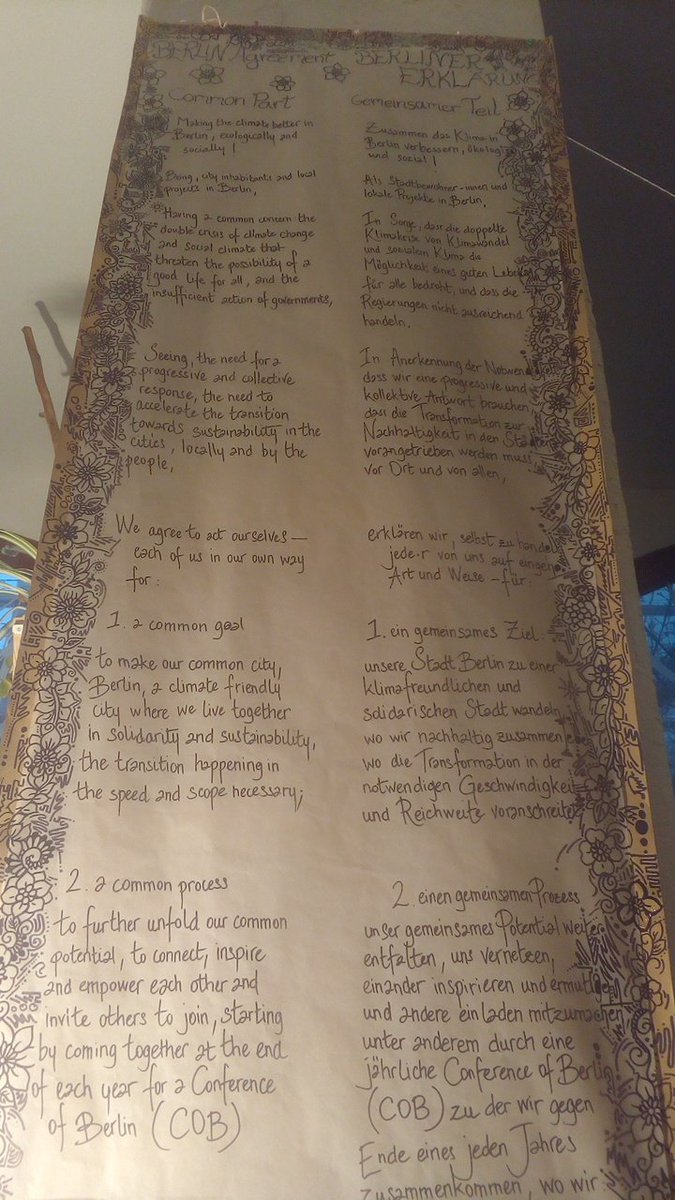 BERLIN Agreement
Common Part
Making the climate better in
Berlin, ecologically and
socially!
Being, city inhabitants and local
projects in Berlin,
Having a common concern the
double crisis of climate change
and social climate that
threaten the possibility of a
good life for all, and the
insufficient action of governments,
Seeing, the need for a
progressive and collective
response, the need to
accelerate the transition
towards sustainability in the
cities, locally and by the
people,
We agree to act ourselves –
each of us in our own way
for:
1. a common goal
to make our common city,
Berlin, a climate friendly
city where we live together
in solidarity and sustainability,
the transition happening in
the speed and scope necessary;
2. a common process
to further unfold our common
potential, to connect, inspire
and empower each other and
invite others to join, starting
by coming together at the end
of each year for a Conference
of Berlin (COB)
BERLINER
ERKLÄRUNG
Gemeinsamer Teil
Zusammen das Klima in
Berlin verbessern, ökolog
und sozial!
Als Stadtbewohner·innen und
lokale Projekte in Berlin,
In Sorge, dass die doppelte
Klimakrise von Klimawandel
und sozialem Klima die
Möglichkeit eines guten Lebens
für alle bedroht, und dass die
Regierungen nicht ausreichend
handeln,
In Anerkennung der
dass wir eine progressive und
kollektive Antwort brauchen,
dass die Transformation zur
Nachhaltigkeit in den
vorangetrieben werden muss,
vor Ort und von allen,
erklären wir, selbst zu
jede·r von uns auf eingene
Art und Weise – für:
1. ein gemeinsames Ziel:
unsere Stadt Berlin zu einer
klimafreundlichen und
solidarischen Stadt wandeln,
wo wir nachhaltig zusammen
wo die Transformation in der
notwendigen Geschwindigkeit
und Reichweite voranschreitet
2. einen gemeinsamen Prozess
unser gemeinsames Potential weiter
entfalten, uns vernetzen,
einander inspirieren und
und andere einladen mitzumachen
unter anderem durch eine
jährliche Conference of Berlin
(COB) zu der wir gegen
Ende eines jeden Jahres
zusammenkommen, wo wir